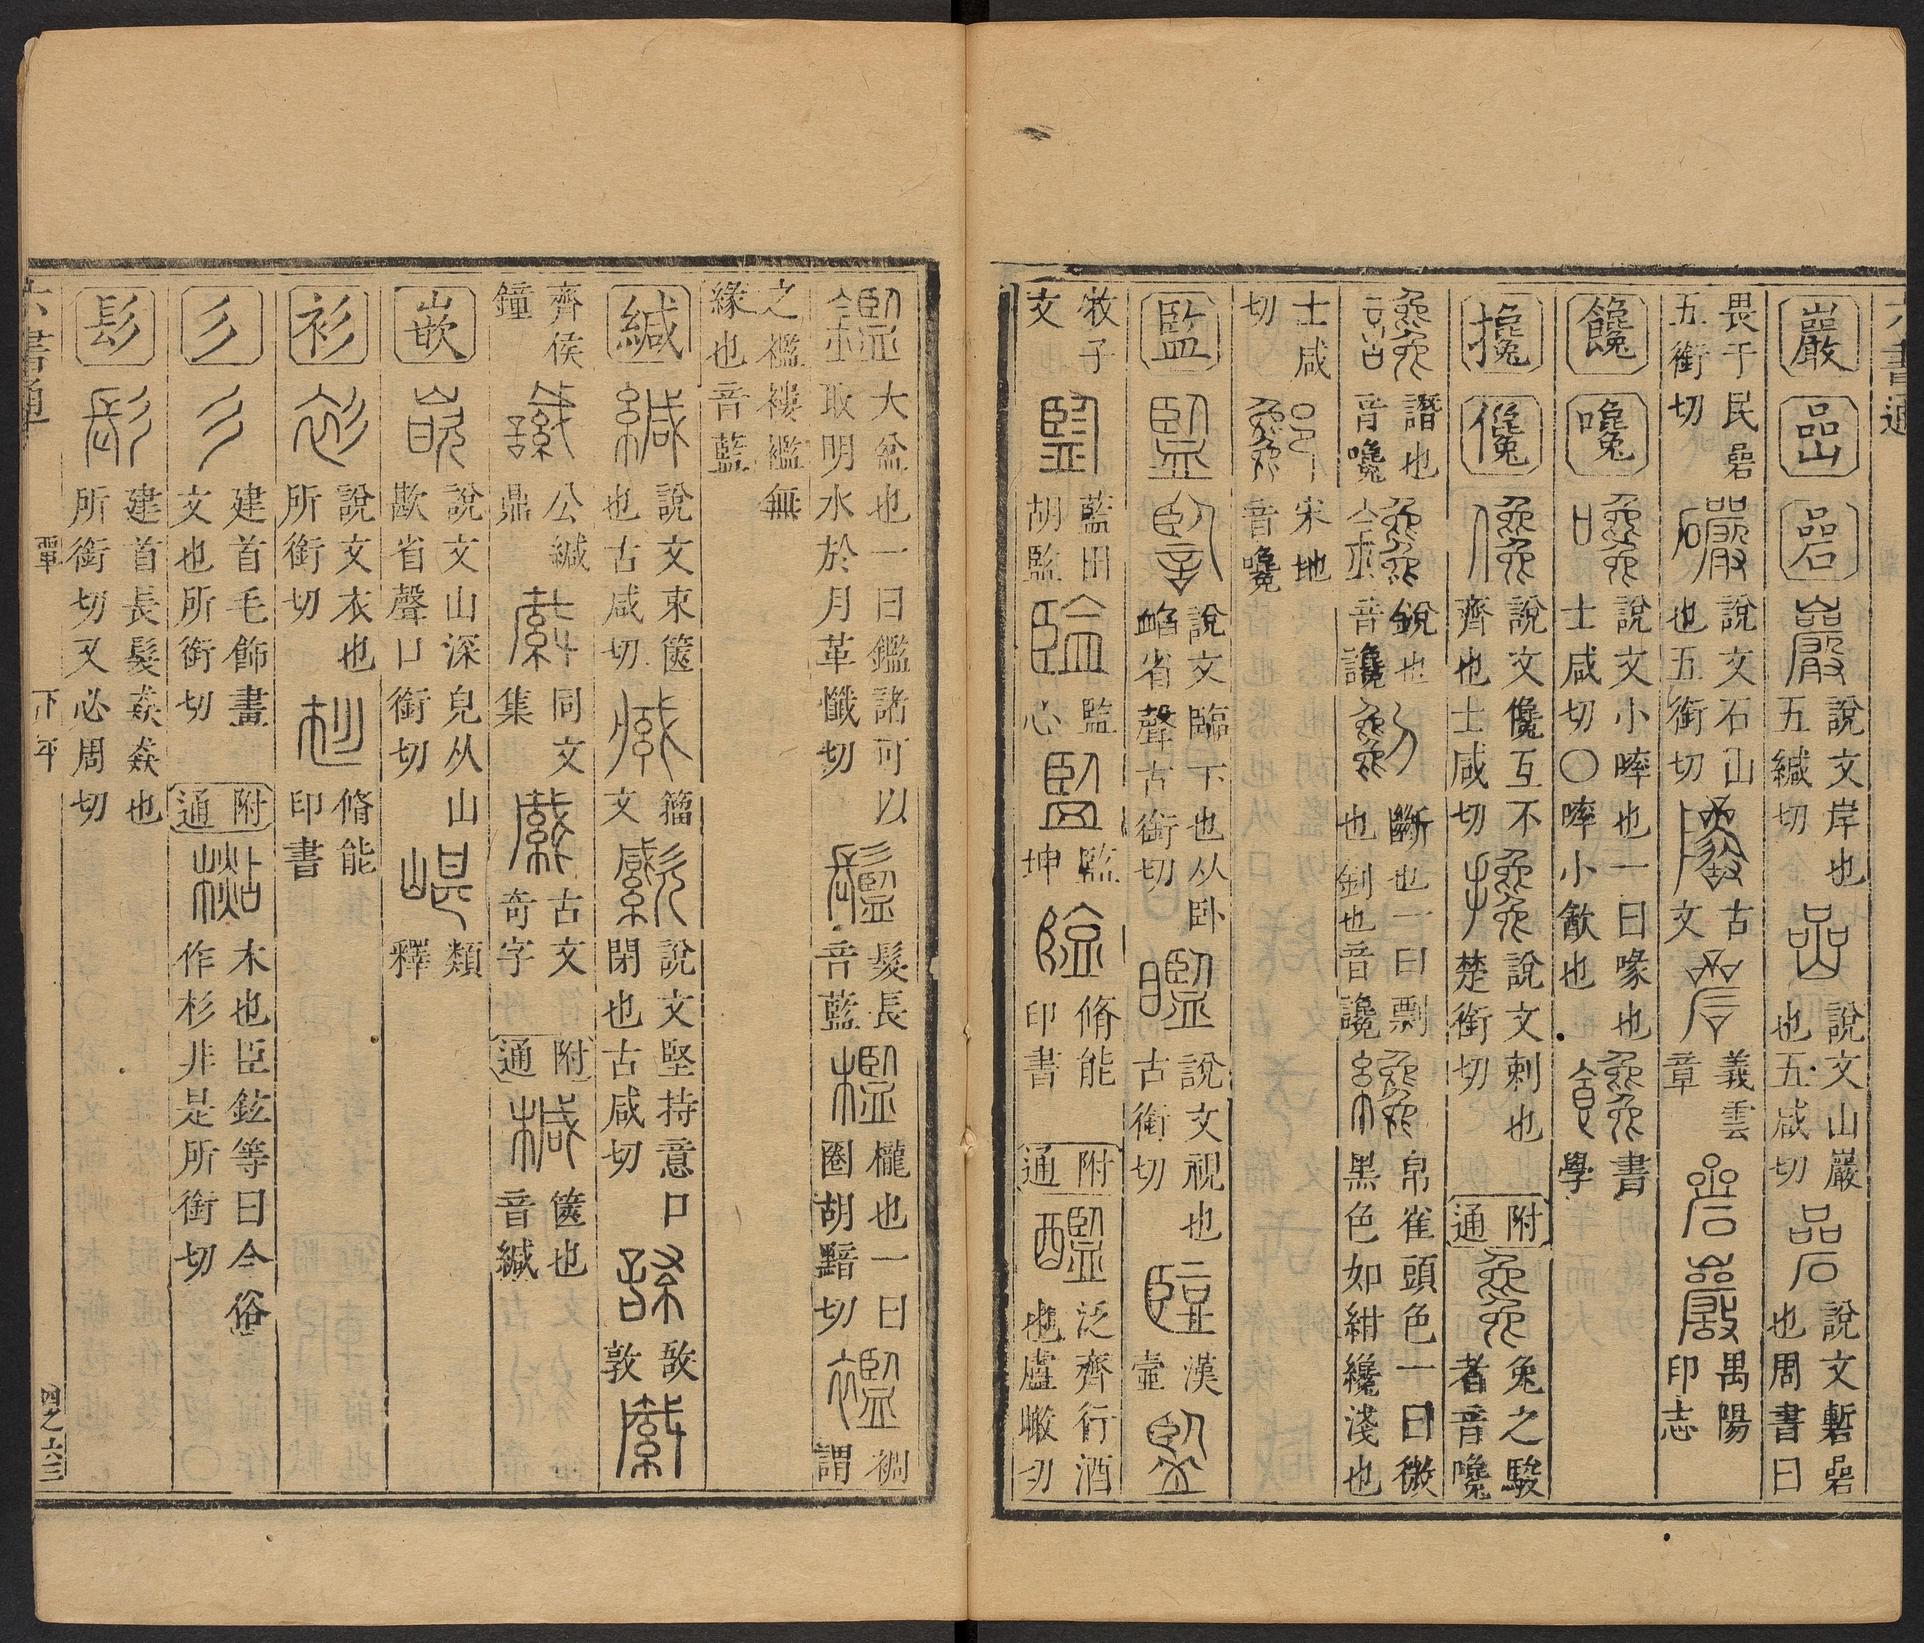 六書通
巖 嵒 碞 說文岸也五緘切 說文山巖也五咸切 說文磛碞也周書曰
畏于民碞五銜切 說文石山也五銜切 古文 義雲章 禹陽印志
饞 嚵 說文小啐也一曰喙也士咸切〇啐小歠也 書學
攙 儳 說文儳互不齊也士咸切 說文刺也楚銜切 附通 兔之駿者音嚵
譖也音嚵 銳也音讒 斷也一曰剽也釗也音讒 帛雀頭色一曰微黑色如紺纔淺也
士咸切 宋地音嚵
監 說文臨下也从卧䘓省聲古銜切 說文視也古銜切 漢壺
牧子文 藍田胡監 監心 監坤 脩能印書 附通 泛齊行酒也盧瞰切
大盆也一曰鑑諸可以取明水於月革懺切 髮長音藍 櫳也一曰圈胡黯切 裯謂
之襤褸襤無緣也音藍
緘 說文束篋也古咸切 籀文 說文堅持意口閉也古咸切 敔敦
齊侯鐘 公緘鼎 同文集 古文奇字 附通 篋也音緘
嵌 說文山深皃从山歁省聲口銜切 類釋
衫 說文衣也所銜切 脩能印書
彡 建首毛飾畫文也所銜切 附通 木也臣鉉等曰今俗作杉非是所銜切
髟 建首長髮猋猋也所銜切又必周切
六書通 覃 下平 四之六三